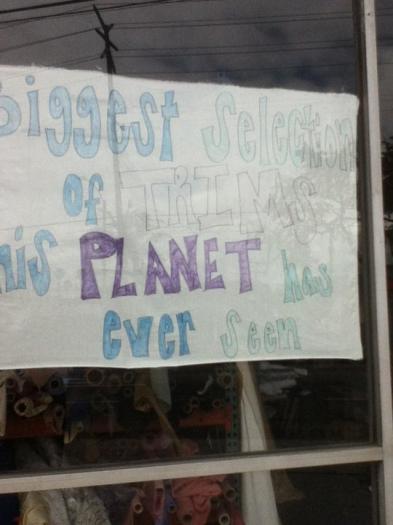 Biggest Selection
of TRIMS
his PLANET has
ever Seen